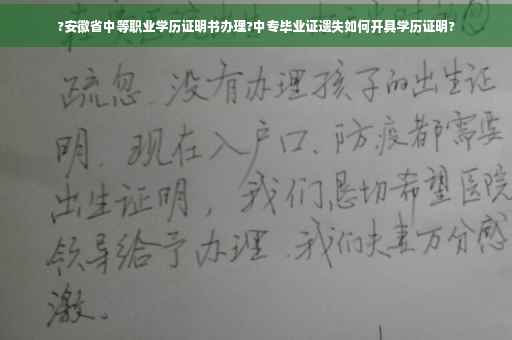 ?安徽省中等职业学历证明书办理?中专毕业证遗失如何开具学历证明?
疏忽、没有办理孩子的出生证
明、现在入户口、防疫都需要
出生证明，我们恳切希望医院
领导给予办理、我们夫妻万分感
激。